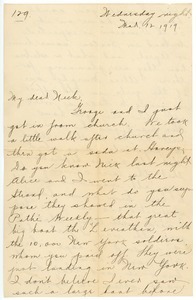 129
Wednesday night
Mar. 12, 1919
My dear Nick,
George and I just
got in from church. We took
a little walk after church and
then got a soda at Harveys.
Do you know Nick last night
Alice and I went to the
Strand, and what do you sup-
pose they showed in the
Pathé Weekly – that great
big boat the Leviathan, with
the 10,000 New York soldiers,
whom you paid off. They were
just landing in New York.
I don't believe I ever saw
such a large boat before.